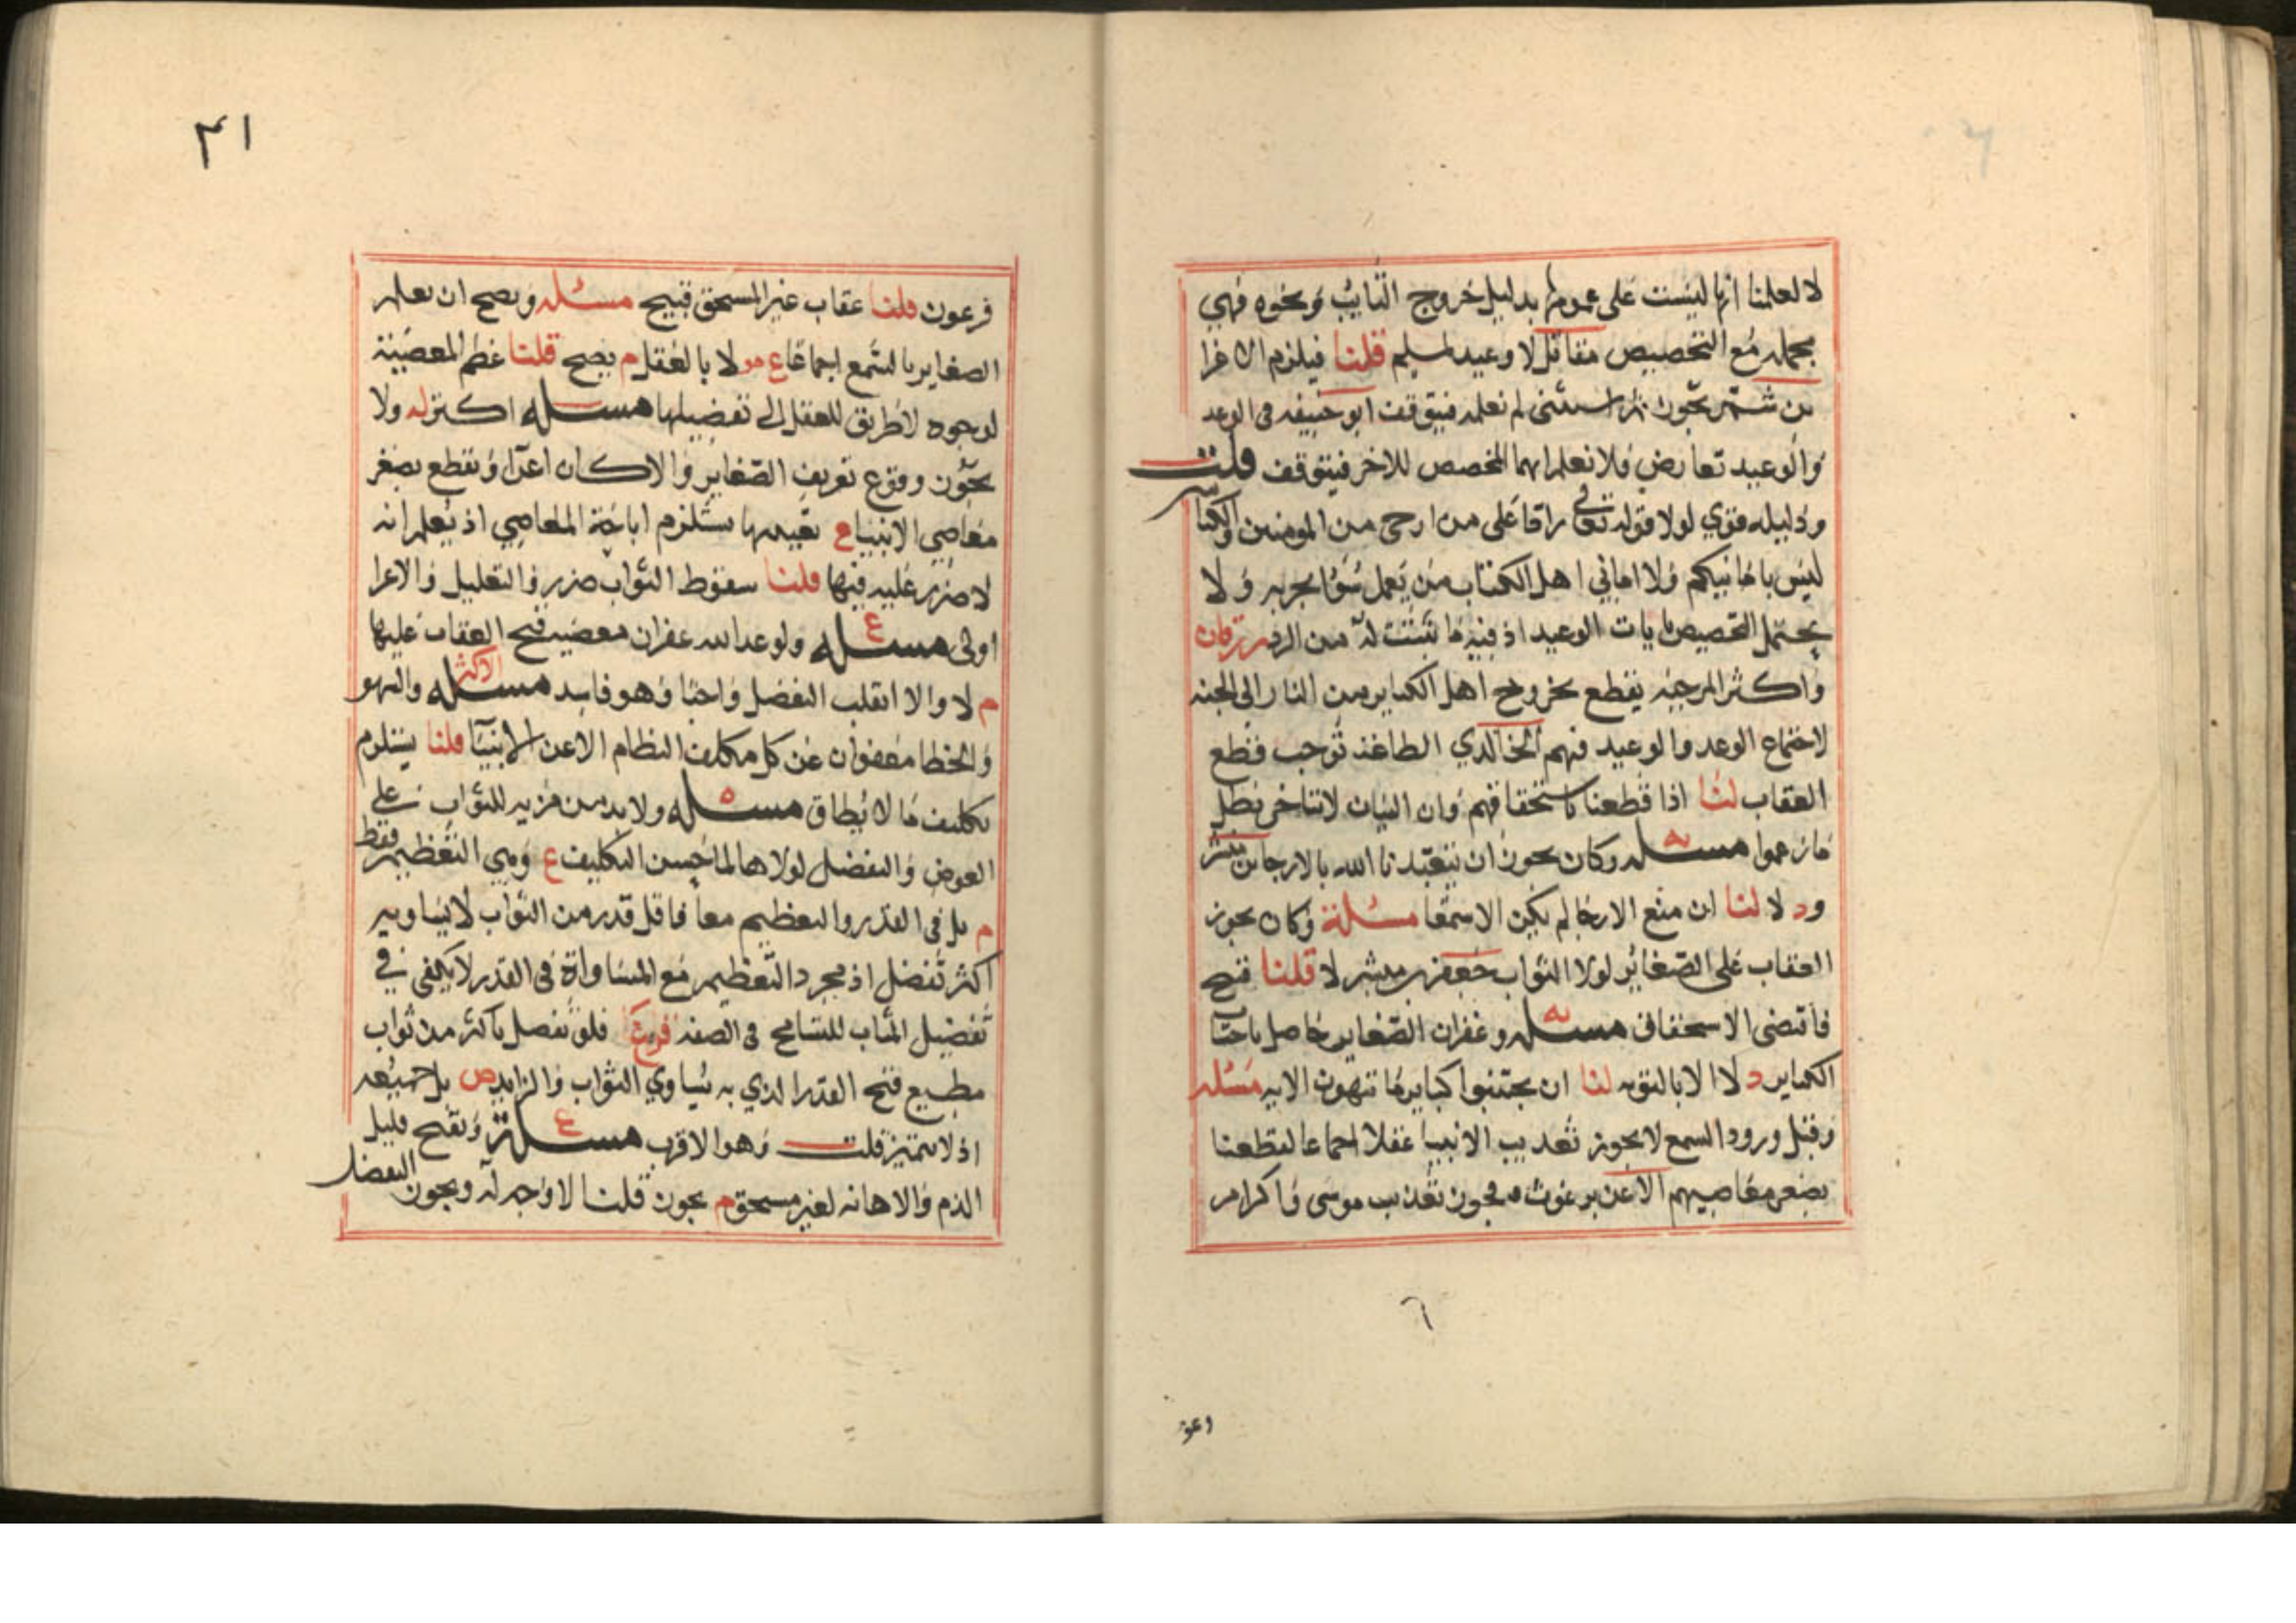 لا لعلمنا انها ليست على عمومها بدليل خروج التايب ونحوه فهي
مجمله مع التخصيص مقاتل لا وعيد لمسلم قلنا فيلزم الاغرا
بن شمر يجوز ثم استثنى لم نعلمه فيتوقف ابو حنيفه فى الوعد
والوعيد تعارض فلا نعلم ايهما المخصص للاخر فيتوقف قلت
ودليله قوي لولا قوله تعالى
ليس بامانيكم ولا اماني اهل الكتاب من يعمل سؤا يجز به ولا
يحتمل التخصيص بايات الوعيد اذ فيه ما نبئت له من الرد زرقان
واكثر المرجيه يقطع بخروج اهل الكباير من النار الى الجنه
لاجتماع الوعد والوعيد فيهم الخالدي الطاعة توجب قطع
العقاب لنا اذا قطعنا باستحقاقهم وان البيان لا يتاخر بطل
ما زعموا مسله وكان يجوز ان يتعبدنا الله بالارجا بن مبشر
ود لا لنا ان منع الارجا لم يكن الا سمعا مسئلة وكان يجوز
العقاب على الصغائر لولا الثواب جعفر بن مبشر لا قلنا قبح
فاقتضى الاستحقاق مسله وغفران الصغاير حاصل باجتناب
الكباير د لا الا بالتوبه لنا ان تجتنبوا كباير ما تنهون الايه مسئله
وقبل ورود السمع لا يجوز تعذيب الانبيا عقلا اجماعا لقطعنا
بصغر معاصيهم الا عن برغوث فيجوز تعذيب موسى واكرام
٦
وعو
٤١
فرعون قلنا عقاب غير المستحق قبيح مسئله ويصح ان نعلم
الصغاير بالسمع اجماعا ع مو لا بالعقل م يصح قلنا عظم المعصية
لوجوه لا طريق للعقل الى تفضيلها مسله اكثر له ولا
يجوز وقوع تعريف الصغاير والا كان اغرا ونقطع بصغر
معاصي الانبيا ع تستلزم اباحة المعاصي اذ يعلم انه
لا ضرر عليه فيها قلنا سقوط الثواب ضرر والتعليل والاغرا
اولى مسله ع ولو وعد الله غفران معصيه قبح العقاب عليها
م لا والا انقلب التفضل واجبا وهو فاسد مسله الاكثر والسهو
والخطا معفوان عن كل مكلف النظام الا عن الانبيا قلنا يستلزم
تكليف ما لا يطاق مسله ولا بد من مزيه للثواب على
العوض والتفضل لولاها لما حسن التكليف ع وهي التعظيم فقط
م بل في القدر والتعظيم معا فاقل قدر من الثواب لا يساويه
اكثر تفضل اذ مجرد التعظيم مع المساواة فى القدر لا يكفى في
تفضيل المثاب للتسامح فى الصفه فرع فلو تفضل باكثر من ثواب
مطيع قبح القدر الذي به يساوي الثواب والزايد ص بل جميعه
اذ لا يتميز قلت وهو الاقرب مسلة ع ونقبح قليل
الذم والاهانه لغير مستحق م يجوز قلنا لا وجه له ويجوز التفضل